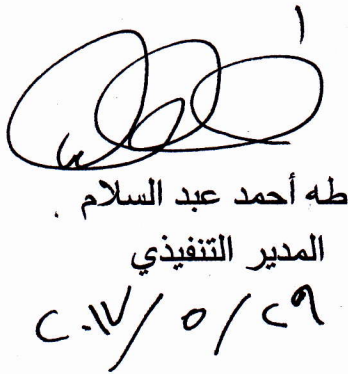 طه أحمد عبد السلام
المدير التنفيذي
٢٠١٧/٥/٢٩